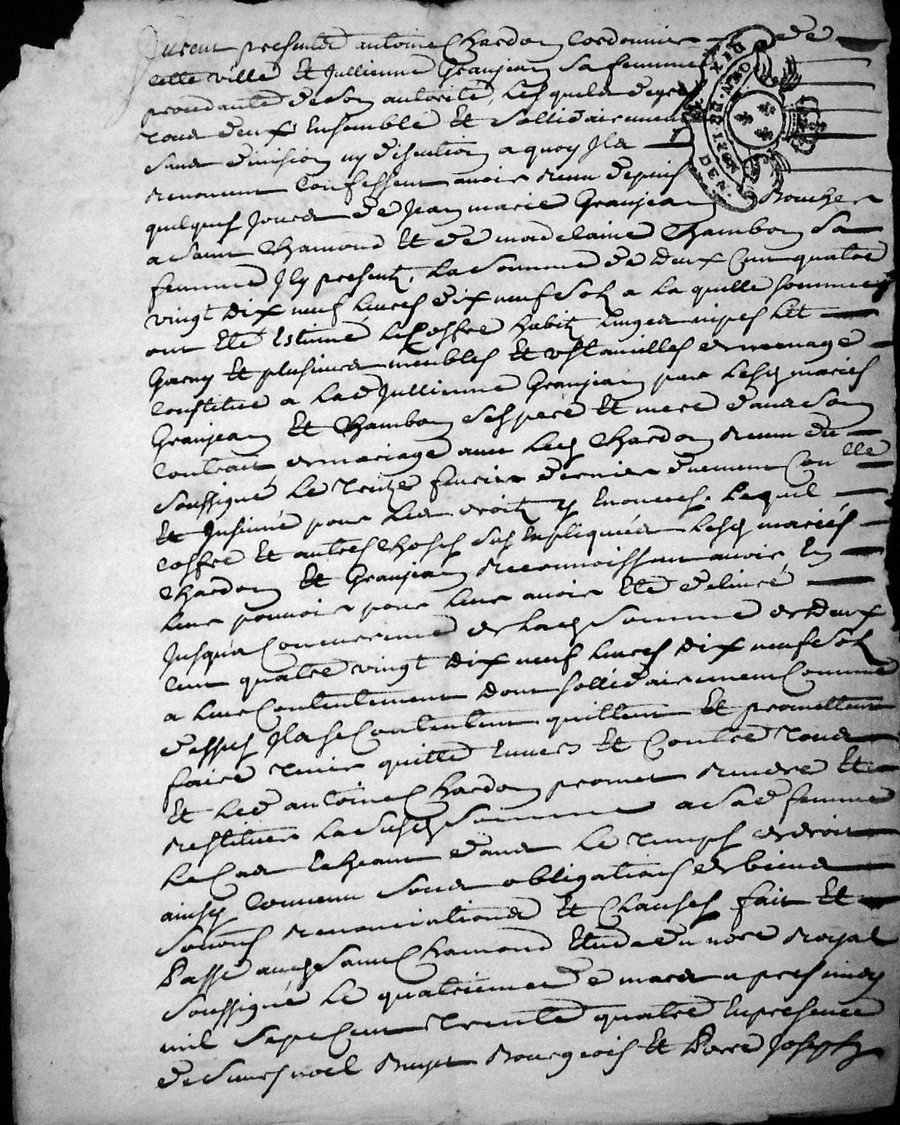 furent presents antoine Chardon Cordonnier de
cette ville Et Jullienne Granjean sa femme
procedante de son autorité, Lesquels de gré
tous deux Ensemble Et sollidairement
sans division ny discution a quoy Ils
renoncent Confessent avoir receu depuis
quelques Jours de Jean marie Granjean Boucher
a Saint Chamond Et de madelaine Chambon sa
femme Icy presents, La somme de deux Cent quatre
vingt dix neuf livres dix neuf sols a la quelle somme
ont Eté Estimé le Coffre habits linges nipes lit
Garny Et plusieurs meubles Et Ustancilles de menage
Constitué a lad Jullienne Granjean par lesd mariés
Granjean Et Chambon ses pere Et mere dans son
Contrat de mariage avec led Chardon receu du
soussigné le treize fevrier dernier duement Conlle
Et Insinué pour les droits y Enoncés. Lequel
coffre Et autres choses sus Expliquées lesd mariés
Chardon Et Granjean reconnoissent avoir En
leur pouvoir pour leur avoir Eté delivré
Jusqu'a Concurrence de lad somme de deux
cent quatre vingt dix neuf livres dix neuf sols
a leur Contentement dont sollidairement Comme
dessus Ils se Contentent quittent Et promettent
faire tenir quitte Envers Et Contre tous
Et led antoine Chardon promet rendre Et
restituer La susd somme a sad femme
le Cas Echeant dans le temps de droit
ainsy Convenu sous obligations de biens
renonciations Et Clauses fait Et
Passé aud Saint Chamond Etude du nore Royal
soussigné le quatrieme de mars apres midy
mil sept Cent trente quatre En presence
de sieurs noel Bourgeois Et Joseph